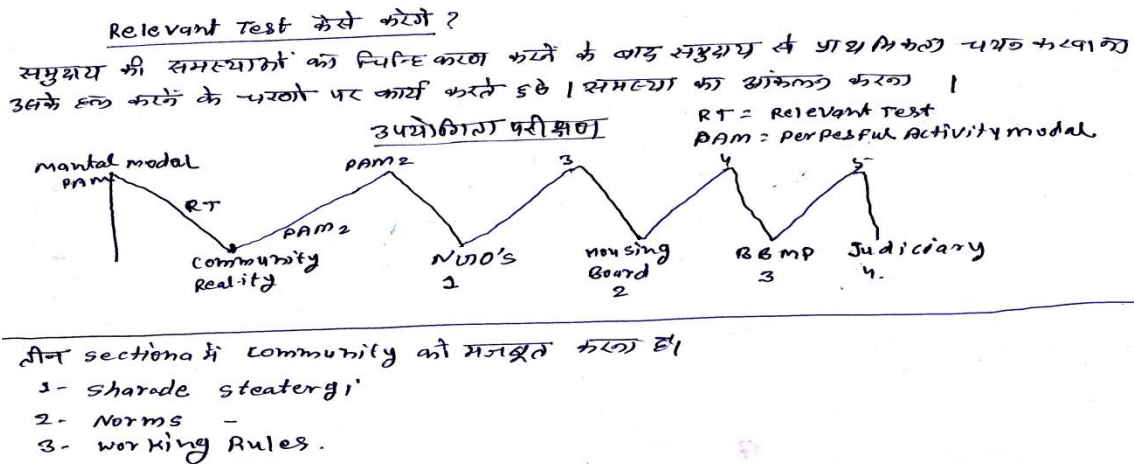 Relevant Test कैसे करेगे ?
समुदाय की समस्याओं को चिन्हिकरण करने के बाद समुदाय से प्राथमिकता चयन करवाना
उसके हल करने के चरणो पर कार्य करते हुये । समस्या का आंकलन करना ।
उपयोगिता परीक्षण
RT = Relevant Test
PAM = perpesful Activity modal
mantal modal
PAM
PAM 2
3
4
5
RT
PAM 2
community
Reality
NGO's
1
Housing
Board
2
BBMP
3
Judiciary
4.
तीन sectiona में community को मजबूत करना है।
1- sharade steatergi
2- Norms -
3- working Rules.